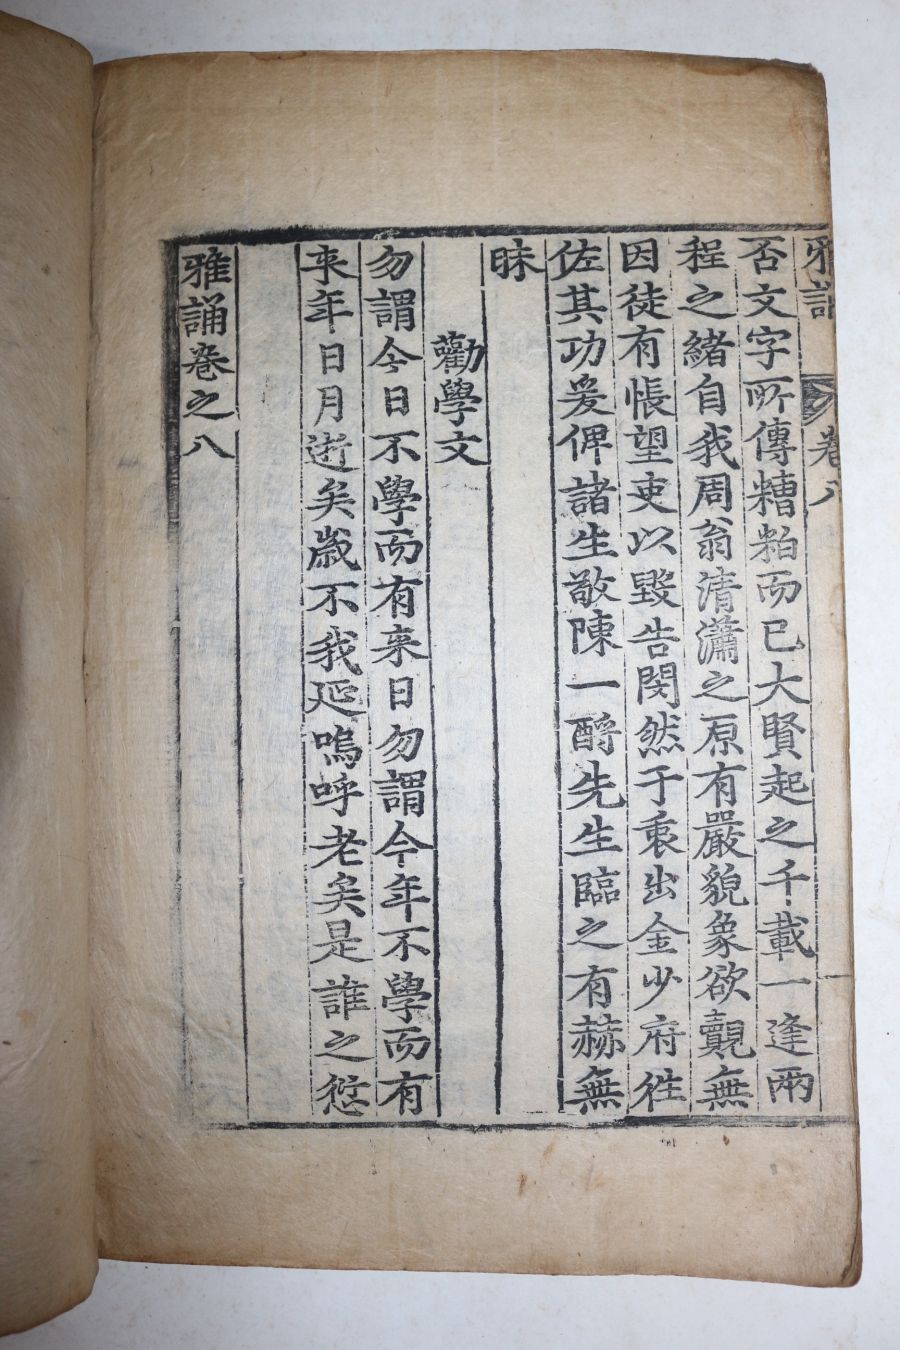 雅誦 卷八
否文字所傳糟粕而已大賢起之千載一逢兩
程之緒自我周翁清瀟之原有嚴貌象欲覿無
因徒有悵望吏以毀告閔然于衷出金少府徃
佐其功爰俾諸生敬陳一酹先生臨之有赫無
昧
勸學文
勿謂今日不學而有來日勿謂今年不學而有
來年日月逝矣歲不我延嗚呼老矣是誰之愆
雅誦卷之八